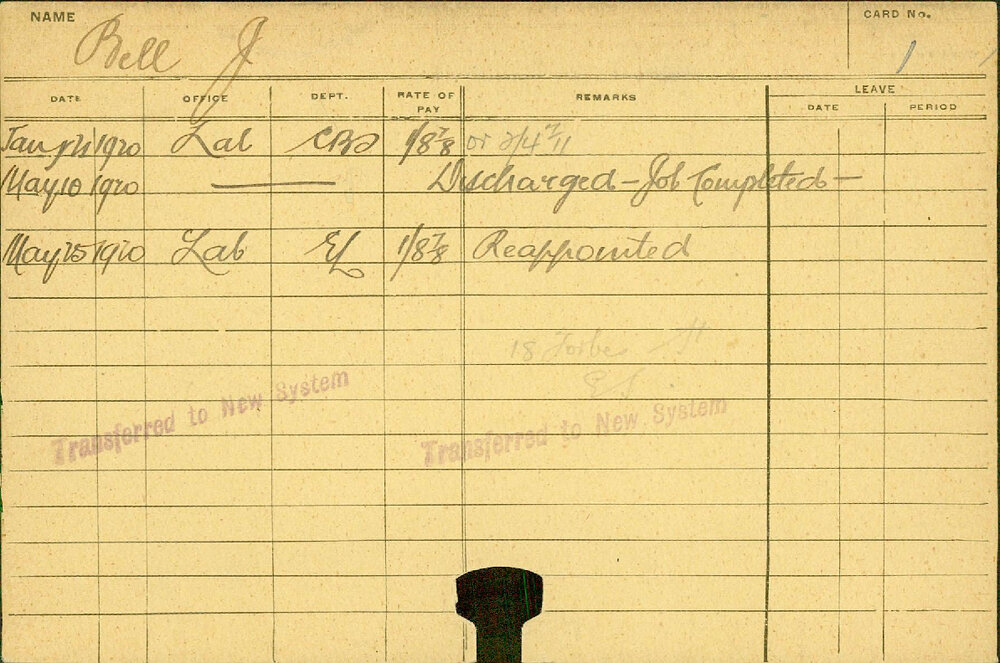 NAME
CARD No.
Bell J
1
DATE OFFICE DEPT. RATE OF PAY REMARKS LEAVE
DATE PERIOD
Jan 1920 Lab CBD 1/8 7/8 or 2/4
May 10 1920 Discharged – Job Completed –
May 25 1920 Lab EL 1/8 7/8 Reappointed
18 Forbes St
Transferred to New System
Transferred to New System